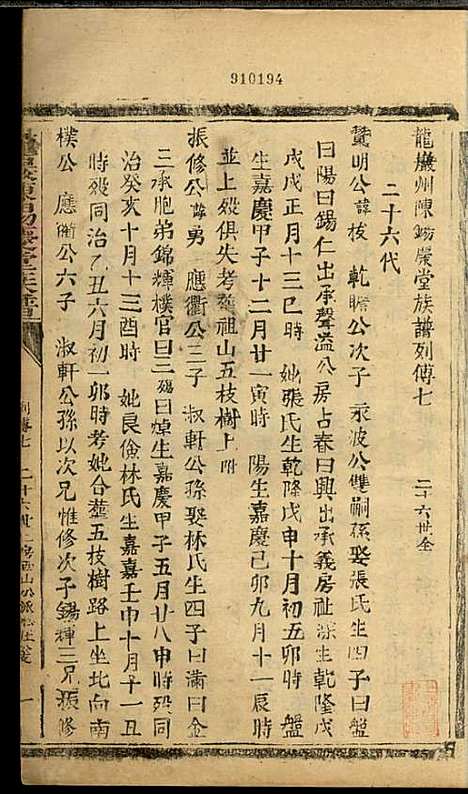 910194
龍巖州陳錫慶堂族譜列傳七 二十六世全
二十六代
贊明公諱枝 乾瞻公次子 汞波公雙嗣孫娶張氏生四子曰盤
曰陽曰錫仁出承聲溢公房占春曰興出承義房祉深生乾隆戊
戌戊正月十三巳時 妣張氏生乾隆戊申十月初五卯時 盤
生嘉慶甲子十二月廿一寅時 陽生嘉慶己卯九月十一辰時
並上歿俱失考塟祖山五枝樹上閉
振修公諱勇 應衢公三子 淑軒公孫娶林氏生四子曰滿曰金
三承胞弟錦輝樸官曰三殤曰焯生嘉慶甲子五月廿八申時歿同
治癸亥十月十三酉時 妣良儉林氏生嘉慶壬申十月十一丑
時歿同治乙丑六月初一卯時考妣合塟五枝樹路上坐北向南
樸公 應衢公六子 淑軒公孫以次兄惟修次子錫輝三兄振修
列傳七 二十六世